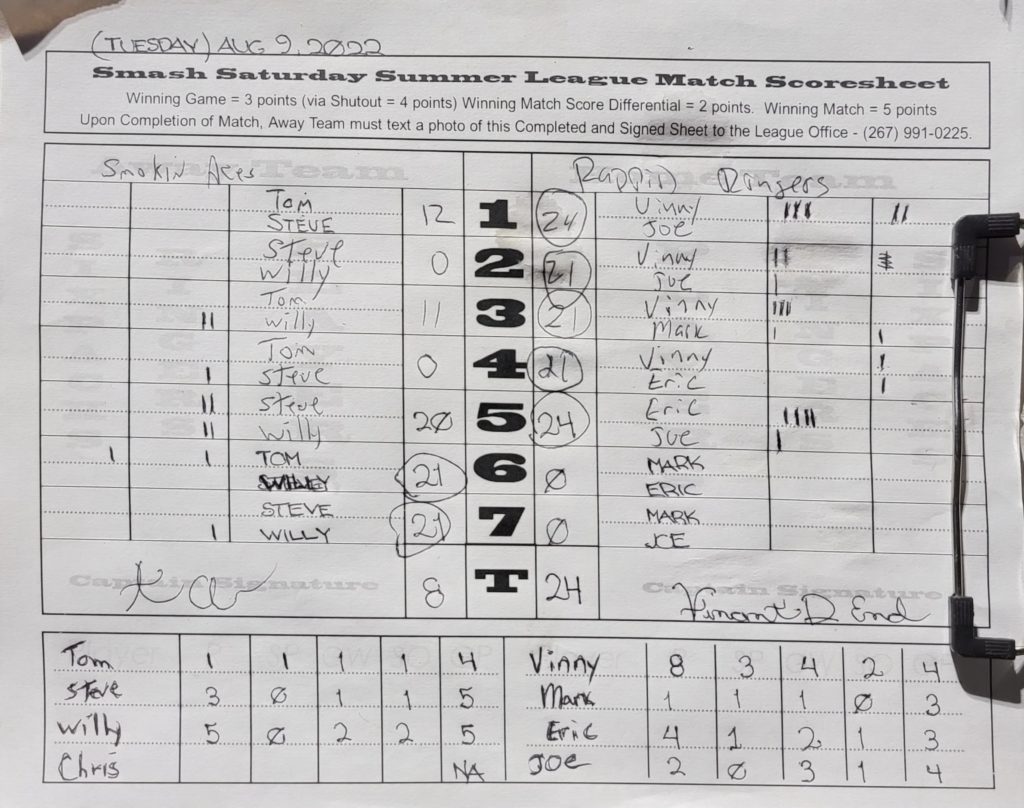 (TUESDAY) AUG 9, 2022
Smash Saturday Summer League Match Scoresheet
Winning Game = 3 points (via Shutout = 4 points) Winning Match Score Differential = 2 points. Winning Match = 5 points
Upon Completion of Match, Away Team must text a photo of this Completed and Signed Sheet to the League Office - (267) 991-0225.
Smokin Aces Rappin Ringers
Tom Vinny
12 1 24
STEVE Joe
Steve Vinny
0 2 21
Willy Joe
Tom Vinny
11 3 21
Willy Mark
Tom Vinny
0 4 21
Steve Eric
Steve Eric
20 5 24
Willy Joe
TOM MARK
21 6 Ø
ERIC
STEVE MARK
21 7 Ø
WILLY JOE
Captain Signature Captain Signature
8 T 24
Tom 1 1 1 1 4 Vinny 8 3 4 2 4
Steve 3 Ø 1 1 5 Mark 1 1 1 Ø 3
Willy 5 Ø 2 2 5 Eric 4 1 2 1 3
Chris NA JOE 2 Ø 3 1 4